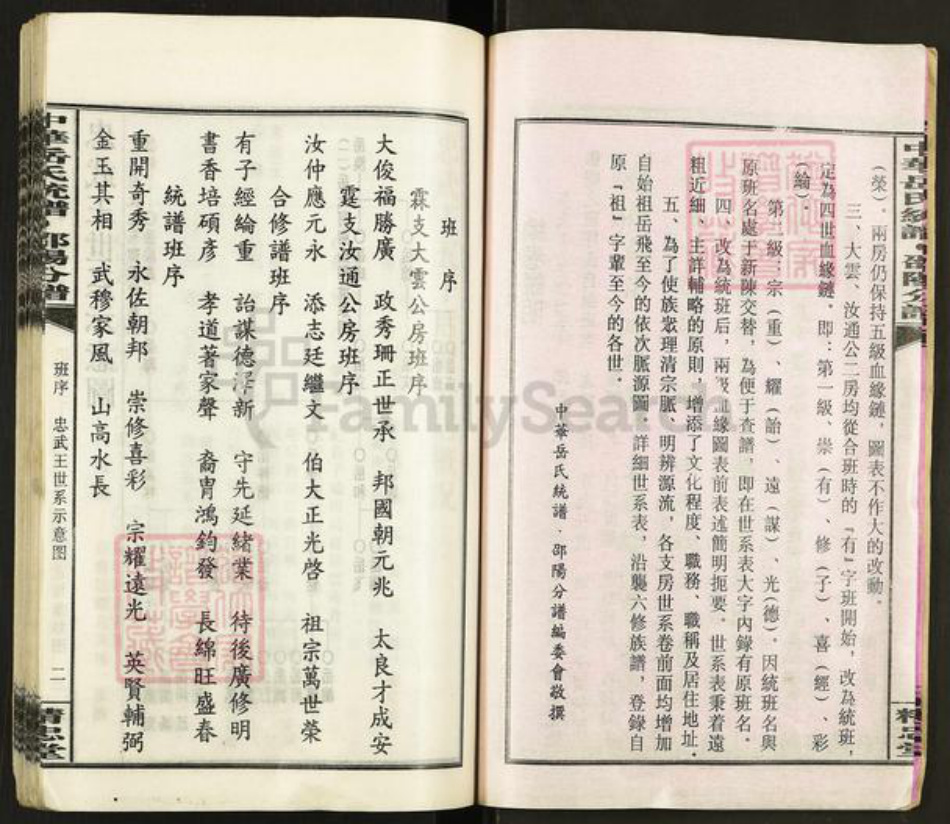 (榮)．兩房仍保持五級血緣鏈，圖表不作大的改動．
三、大雲、汝通公二房均從合班時的『有』字班開始，改為統班，
定為四世血緣鏈．即：第一級、崇(有)、修(子)、喜(經)、彩
(綸)．
第二級：宗(重)、耀(詒)、遠(謀)、光(德)．因統班名與
原班名處于新陳交替，為便于查譜，即在世系表大字內錄有原班名．
四、改為統班后，兩級血緣圖表前表述簡明扼要．世系表秉着遠
粗近細、主詳輔略的原則，增添了文化程度、職務、職稱及居住地址．
五、為了使族眾理清宗脈，明辨源流，各支房世系卷前面均增加
自始祖岳飛至今的依次脈源圖．詳細世系表，沿襲六修族譜，登錄自
原『祖』字輩至今的各世．
中華岳氏統譜．邵陽分譜編委會敬撰
中華岳氏統譜．邵陽分譜
精忠堂
班序
霖支大雲公房班序
大俊福勝廣　政秀珊正世承　邦國朝元兆　太良才成安
霆支汝通公房班序
汝仲應元永　添志廷繼文　伯大正光啓　祖宗萬世榮
合修譜班序
有子經綸重　詒謀德澤新　守先延緒業　待後廣修明
書香培碩彥　孝道著家聲　裔胄鴻鈞發　長綿旺盛春
統譜班序
重開奇秀　永佐朝邦　崇修喜彩　宗耀遠光　英賢輔弼
金玉其相　武穆家風　山高水長
中華岳氏統譜．邵陽分譜
班序　忠武王世系示意图
二
精忠堂
FamilySearch